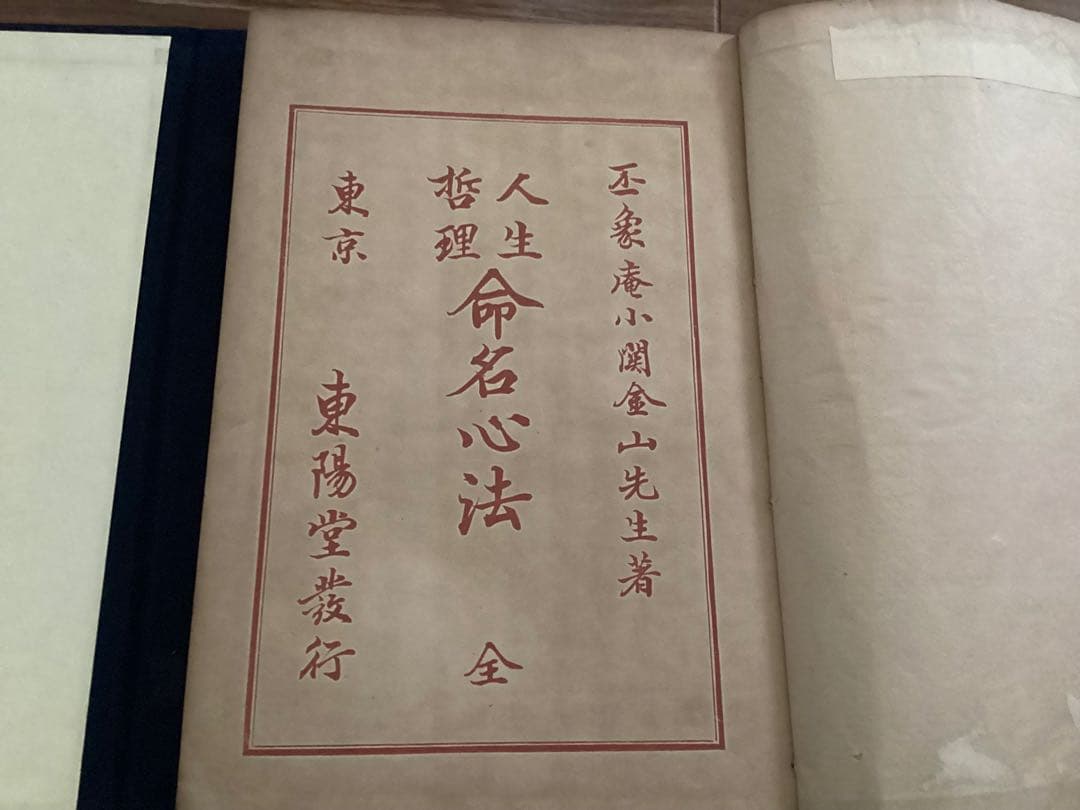 丕象庵小関金山先生著
人生
哲理
命名心法 全
東京 東陽堂發行